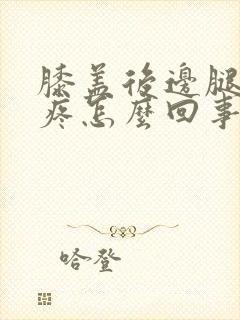 膝盖後邊腿
疼怎麼回事
哈登